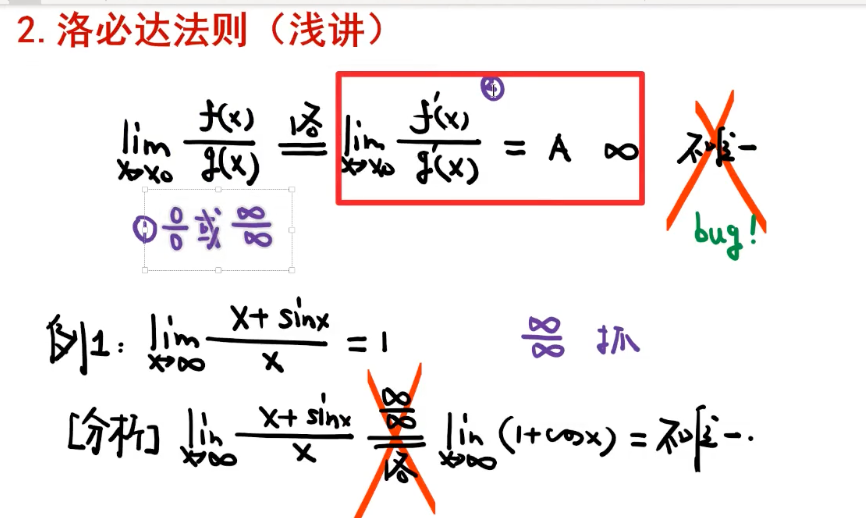 2. 洛必达法则（浅讲）
lim x→x₀ f(x)/g(x) 洛= lim x→x₀ f'(x)/g'(x) = A ∞ 不唯一
① 0/0 或 ∞/∞ ②
bug!
例1: lim x→∞ (x+sinx)/x = 1 ∞/∞ 抓
[分析] lim x→∞ (x+sinx)/x ∞/∞ 洛= lim x→∞ (1+cosx) = 不唯一.